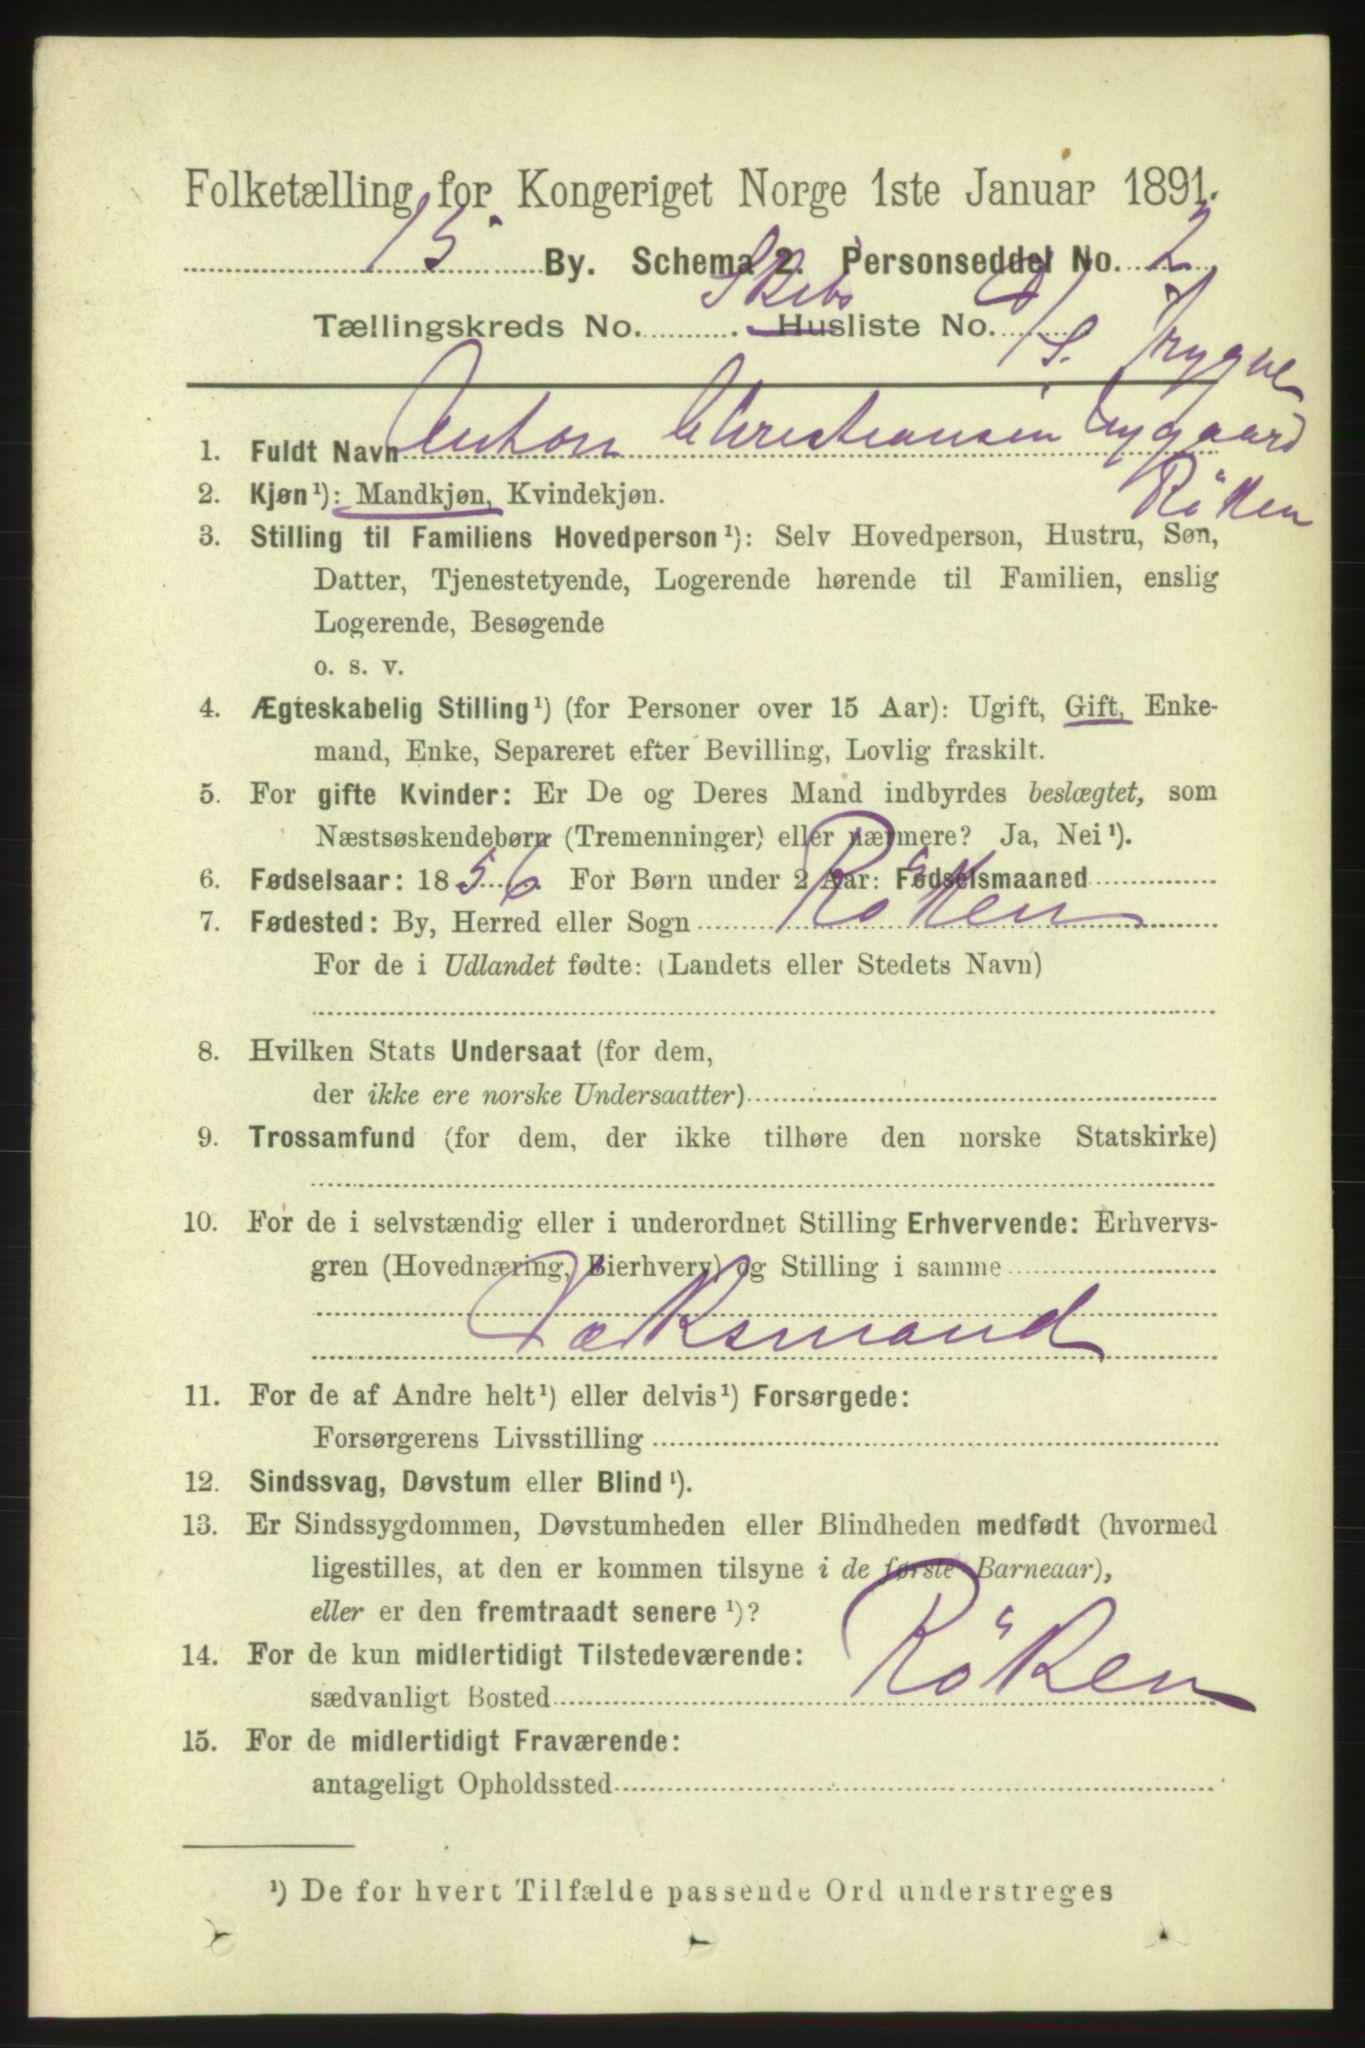 Folketælling for Kongeriget Norge 1ste Januar 1891.
15 By. Schema 2. Personseddel No. 2
Tællingskreds No. Skibs Husliste No. D/S. Trygve
1. Fuldt Navn Anton Christiansen Nygaard
Röken
2. Kjøn¹): Mandkjøn, Kvindekjøn.
3. Stilling til Familiens Hovedperson¹): Selv Hovedperson, Hustru, Søn,
Datter, Tjenestetyende, Logerende hørende til Familien, enslig
Logerende, Besøgende
o. s. v.
4. Ægteskabelig Stilling¹) (for Personer over 15 Aar): Ugift, Gift, Enke-
mand, Enke, Separeret efter Bevilling, Lovlig fraskilt.
5. For gifte Kvinder: Er De og Deres Mand indbyrdes beslægtet, som
Næstsøskendebørn (Tremenninger) eller nærmere? Ja, Nei¹).
6. Fødselsaar: 1856. For Børn under 2 Aar: Fødselsmaaned
7. Fødested: By, Herred eller Sogn Röken
For de i Udlandet fødte: (Landets eller Stedets Navn)
8. Hvilken Stats Undersaat (for dem,
der ikke ere norske Undersaatter)
9. Trossamfund (for dem, der ikke tilhøre den norske Statskirke)
10. For de i selvstændig eller i underordnet Stilling Erhvervende: Erhvervs-
gren (Hovednæring, Bierhverv) og Stilling i samme
Dæksmand
11. For de af Andre helt¹) eller delvis¹) Forsørgede:
Forsørgerens Livsstilling
12. Sindssvag, Døvstum eller Blind¹).
13. Er Sindssygdommen, Døvstumheden eller Blindheden medfødt (hvormed
ligestilles, at den er kommen tilsyne i de første Barneaar),
eller er den fremtraadt senere¹)?
14. For de kun midlertidigt Tilstedeværende:
sædvanligt Bosted Röken
15. For de midlertidigt Fraværende:
antageligt Opholdssted
¹) De for hvert Tilfælde passende Ord understreges